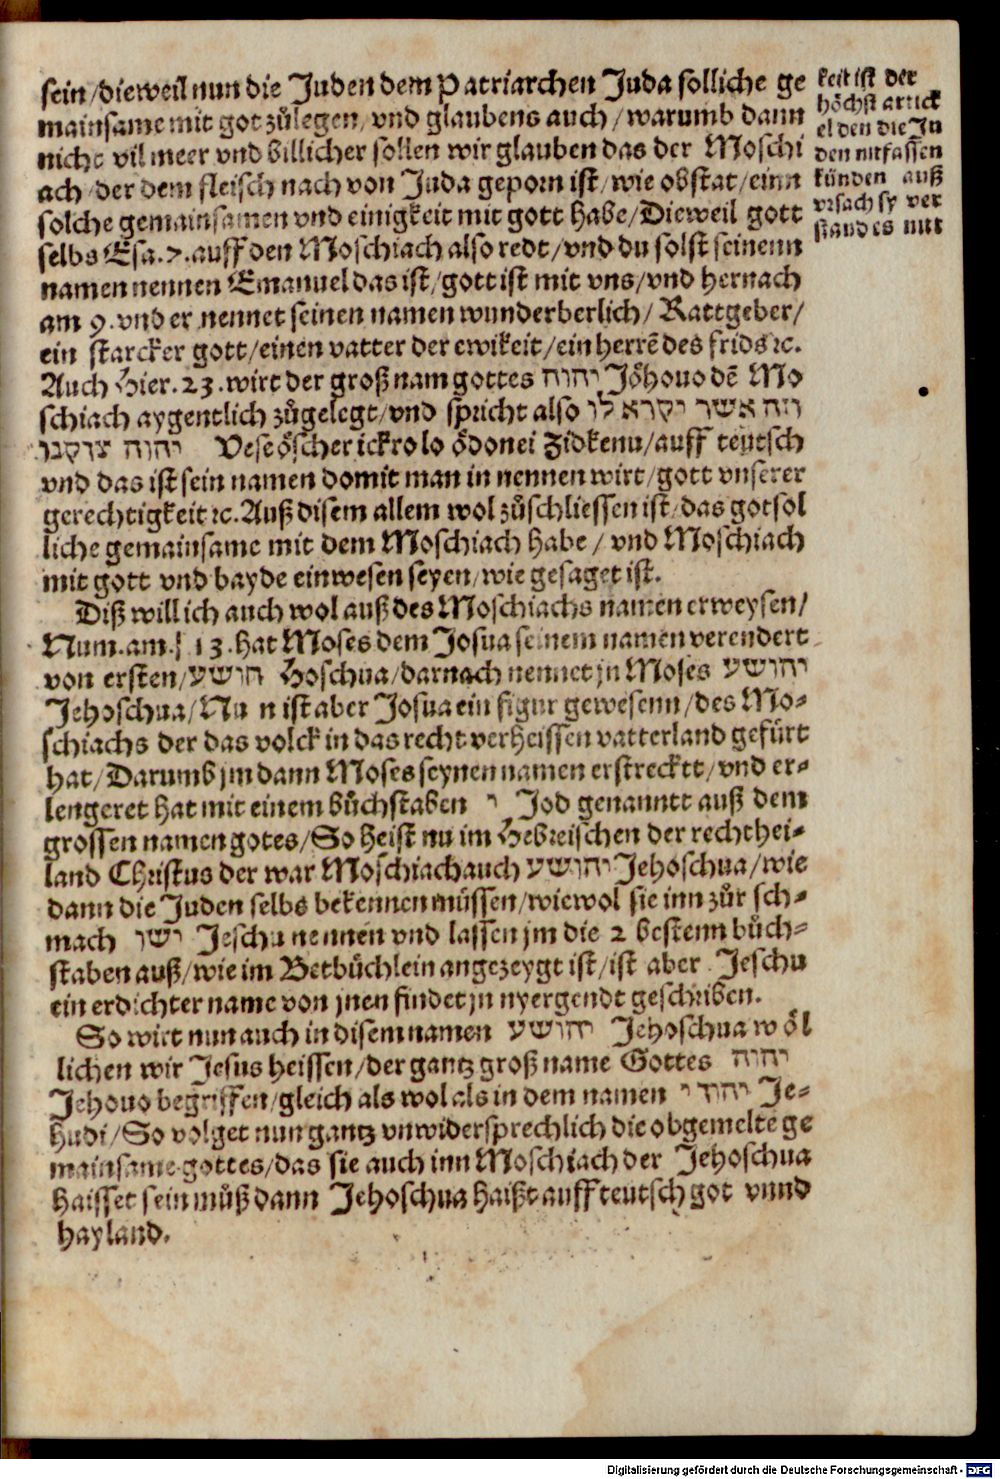 sein/dieweil nun die Juden dem Patriarchen Juda solliche ge
mainsame mit got zůlegen/vnd glaubens auch/warumb dann
nicht vil meer vnd billicher sollen wir glauben das der Moschi
ach/der dem fleisch nach von Juda geporn ist/wie obstat/einn
solche gemainsamen vnd einigkeit mit gott habe/Dieweil gott
selbs Esa.7.auff den Moschiach also redt/vnd du solst seinenn
namen nennen Emanuel das ist/gott ist mit vns/vnd hernach
am 9.vnd er nennet seinen namen wunderberlich/Rattgeber/
ein starcker gott/einen vatter der ewikeit/ein herrẽ des frids ꝛc.
Auch Hier.23.wirt der groß nam gottes יהוה Jöhouo dẽ Mo
schiach aygentlich zůgelegt/vnd spricht also וזה אשר יקרא לו
יהוה צדקנו Vese öscher ickro lo ödonei Zidkenu/auff teutsch
vnd das ist sein namen domit man in nennen wirt/gott vnserer
gerechtigkeit ꝛc.Auß disem allem wol zůschliessen ist/das got sol
liche gemainsame mit dem Moschiach habe/vnd Moschiach
mit gott vnd bayde ein wesen seyen/wie gesaget ist.
Diß will ich auch wol auß des Moschiachs namen erweysen/
Num.am. 13.hat Moses dem Josua seinem namen verendert
von ersten/הושע Hoschua/darnach nennet jn Moses יהושע
Jehoschua/Nu n ist aber Josua ein figur gewesenn/des Mo-
schiachs der das volck in das recht verheissen vatterland gefürt
hat/Darumb jm dann Moses seynen namen erstreckt/vnd er-
lengeret hat mit einem bůchstaben י Jod genanntt auß dem
grossen namen gotes/So heist nu im Hebreischen der recht hei-
land Christus der war Moschiach auch יהושע Jehoschua/wie
dann die Juden selbs bekennen müssen/wiewol sie inn zůr sch-
mach ישו Jeschu nennen vnd lassen jm die 2 bestenn bůch-
staben auß/wie im Betbüchlein angezeygt ist/ist aber Jeschu
ein erdichter name von jnen findet jn nyergendt geschriben.
So wirt nun auch in disem namen יהושע Jehoschua wöl
lichen wir Jesus heissen/der gantz groß name Gottes יהוה
Jehouo begriffen/gleich als wol als in dem namen יהודי Je-
hudi/So volget nun gantz vnwidersprechlich die obgemelte ge
mainsame gottes/das sie auch inn Moschiach der Jehoschua
haisset sein můß dann Jehoschua haißt auff teutsch got vnnd
hayland.
keit ist der
höchst artick
el den die Ju
den nit fassen
künden auß
vrsach sy ver
stand es nit
Digitalisierung gefördert durch die Deutsche Forschungsgemeinschaft - DFG